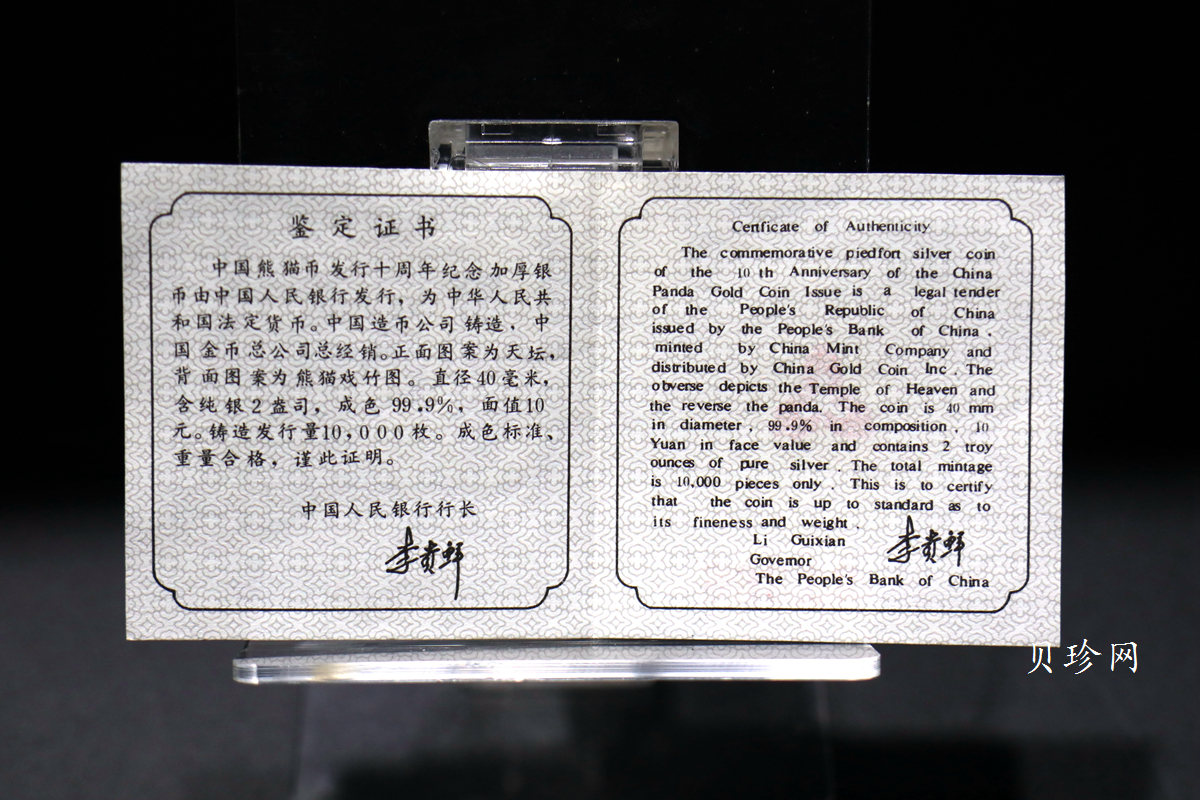 鉴定证书
中国熊猫币发行十周年纪念加厚银
币由中国人民银行发行，为中华人民共
和国法定货币。中国造币公司铸造，中
国金币总公司总经销。正面图案为天坛，
背面图案为熊猫戏竹图。直径40毫米，
含纯银2盎司，成色99.9%，面值10
元。铸造发行量10,000枚。成色标准、
重量合格，谨此证明。
中国人民银行行长
李贵鲜
Certficate of Authenticity
The commemorative piedfort silver coin
of the 10 th Anniversary of the China
Panda Gold Coin Issue is a legal tender
of the People's Republic of China
issued by the People's Bank of China .
minted by China Mint Company and
distributed by China Gold Coin Inc . The
obverse depicts the Temple of Heaven and
the reverse the panda. The coin is 40 mm
in diameter , 99.9% in composition , 10
Yuan in face value and contains 2 troy
ounces of pure silver . The total mintage
is 10,000 pieces only . This is to certify
that the coin is up to standard as to
its fineness and weight .
Li Guixian
李贵鲜
Governor
The People's Bank of China
贝珍网